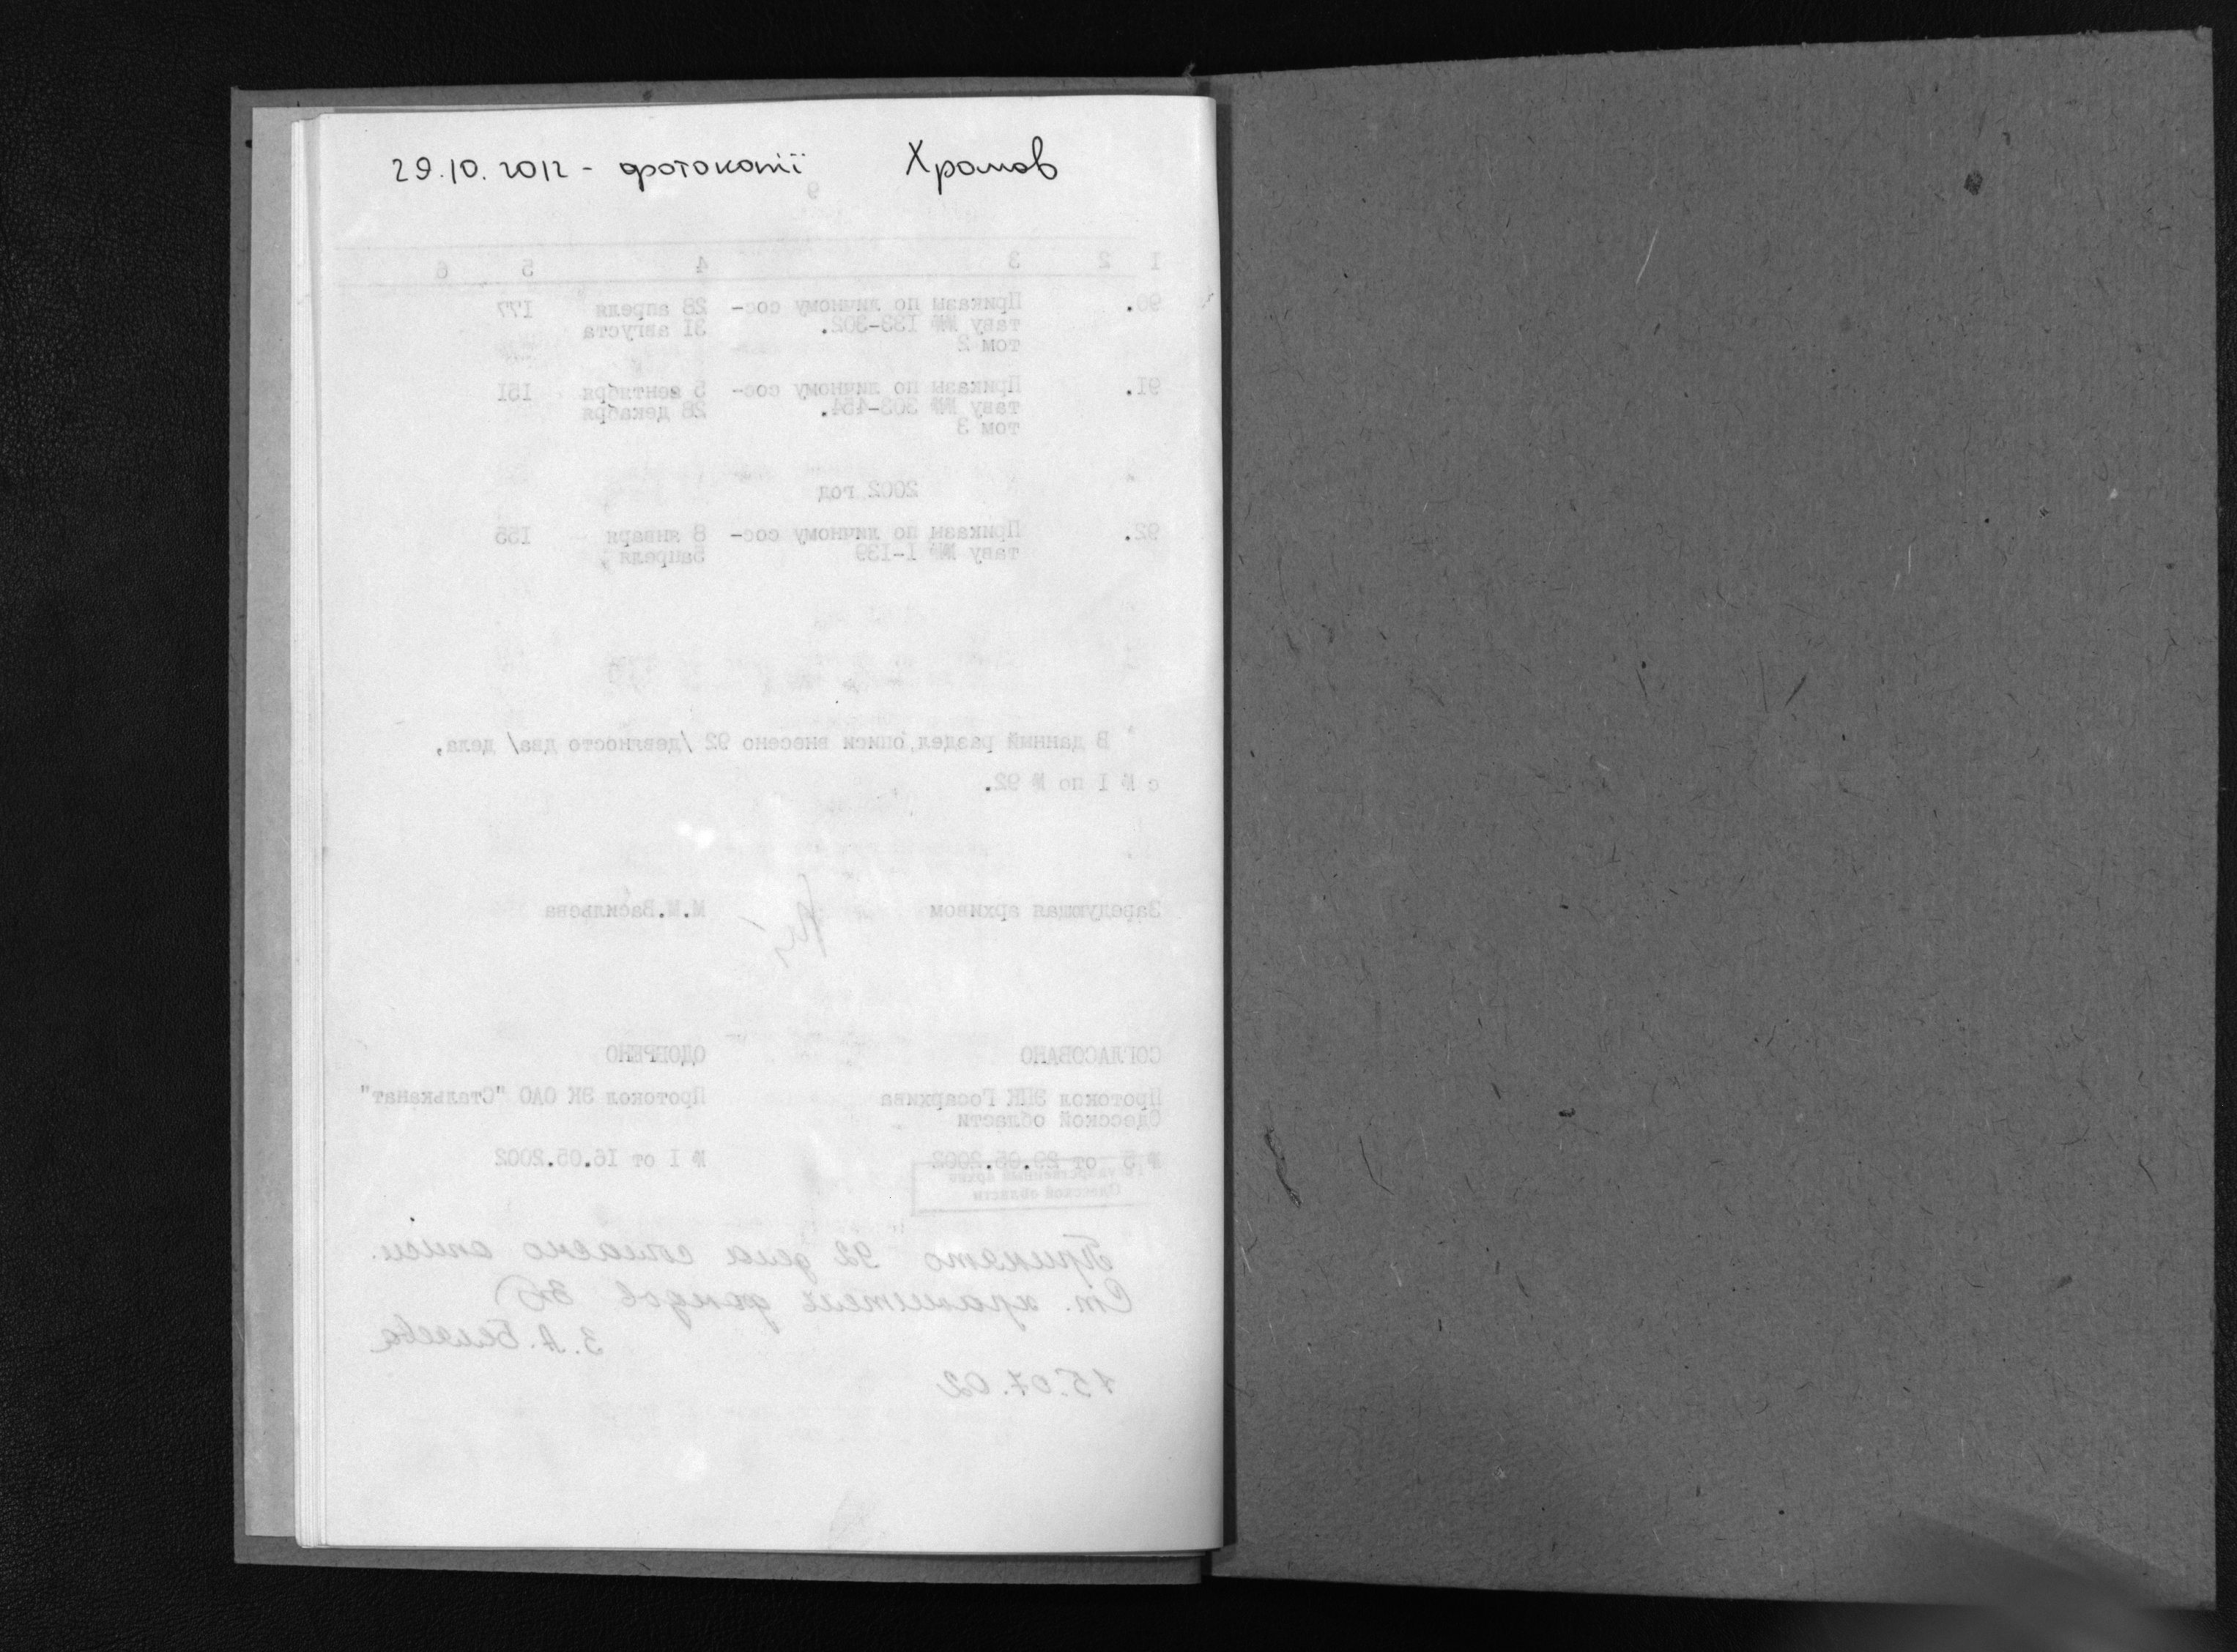 29.10.2012 - фотокопії Храмов
9
1 2 3 4 5 6
90. Приказы по личному сос- 28 апреля 177
таву №№ 133-302. 31 августа
том 2
91. Приказы по личному сос- 5 сентября 151
таву №№ 303-454. 28 декабря
том 3
2002 год
92. Приказы по личному сос- 8 января 155
таву №№ 1-139 5апреля
В данный раздел описи внесено 92 /девяносто два/ дела,
с № 1 по № 92.
Заведующая архивом М.М.Васильева
СОГЛАСОВАНО ОДОБРЕНО
Протокол ЭПК Госархива Протокол ЭК ОАО "Стальканат"
Одесской области
№ 5 от 29.05.2002 № 1 от 16.05.2002
Государственный архив
Одесской области
Принято 92 дела согласно описи.
Ст. хранитель фондов
З.А. Беляева
15.07.02